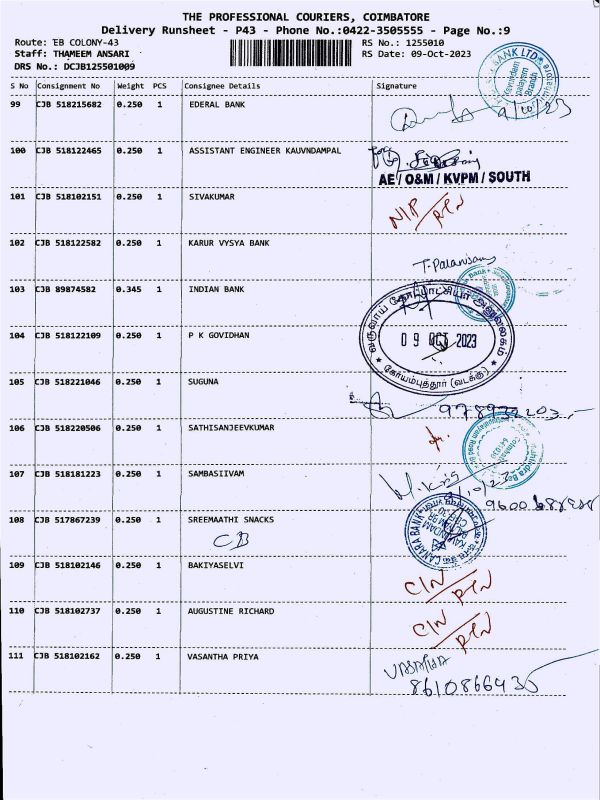 THE PROFESSIONAL COURIERS, COIMBATORE
Delivery Runsheet - P43 - Phone No.:0422-3505555 - Page No.:9
Route: EB COLONY-43 RS No.: 1255010
Staff: THAMEEM ANSARI RS Date: 09-Oct-2023
DRS No.: DCJB125501009
S No Consignment No Weight PCS Consignee Details Signature
99 CJB 518215682 0.250 1 EDERAL BANK
9/10/23
100 CJB 518122465 0.250 1 ASSISTANT ENGINEER KAUVNDAMPAL
AE / O&M / KVPM / SOUTH
101 CJB 518102151 0.250 1 SIVAKUMAR
102 CJB 518122582 0.250 1 KARUR VYSYA BANK
T. Palanisamy
103 CJB 89874582 0.345 1 INDIAN BANK
104 CJB 518122109 0.250 1 P K GOVIDHAN
09 OCT 2023
கோயம்புத்தூர் (வடக்கு)
105 CJB 518221046 0.250 1 SUGUNA
106 CJB 518220506 0.250 1 SATHISANJEEVKUMAR
107 CJB 518181223 0.250 1 SAMBASIIVAM
108 CJB 517867239 0.250 1 SREEMAATHI SNACKS
CB
CANARA BANK
109 CJB 518102146 0.250 1 BAKIYASELVI
CIN RTN
110 CJB 518102737 0.250 1 AUGUSTINE RICHARD
CIN RTN
111 CJB 518102162 0.250 1 VASANTHA PRIYA
8610866435